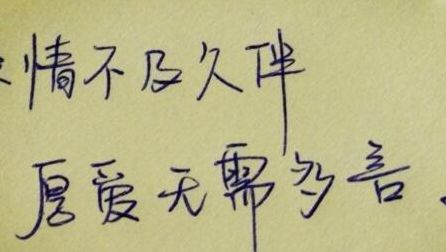 情不及久伴
厚爱无需多言.